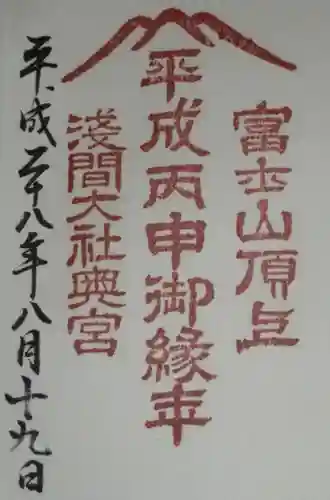 富士山頂上
平成丙申御縁年
淺間大社奥宮
平成二十八年八月十九日